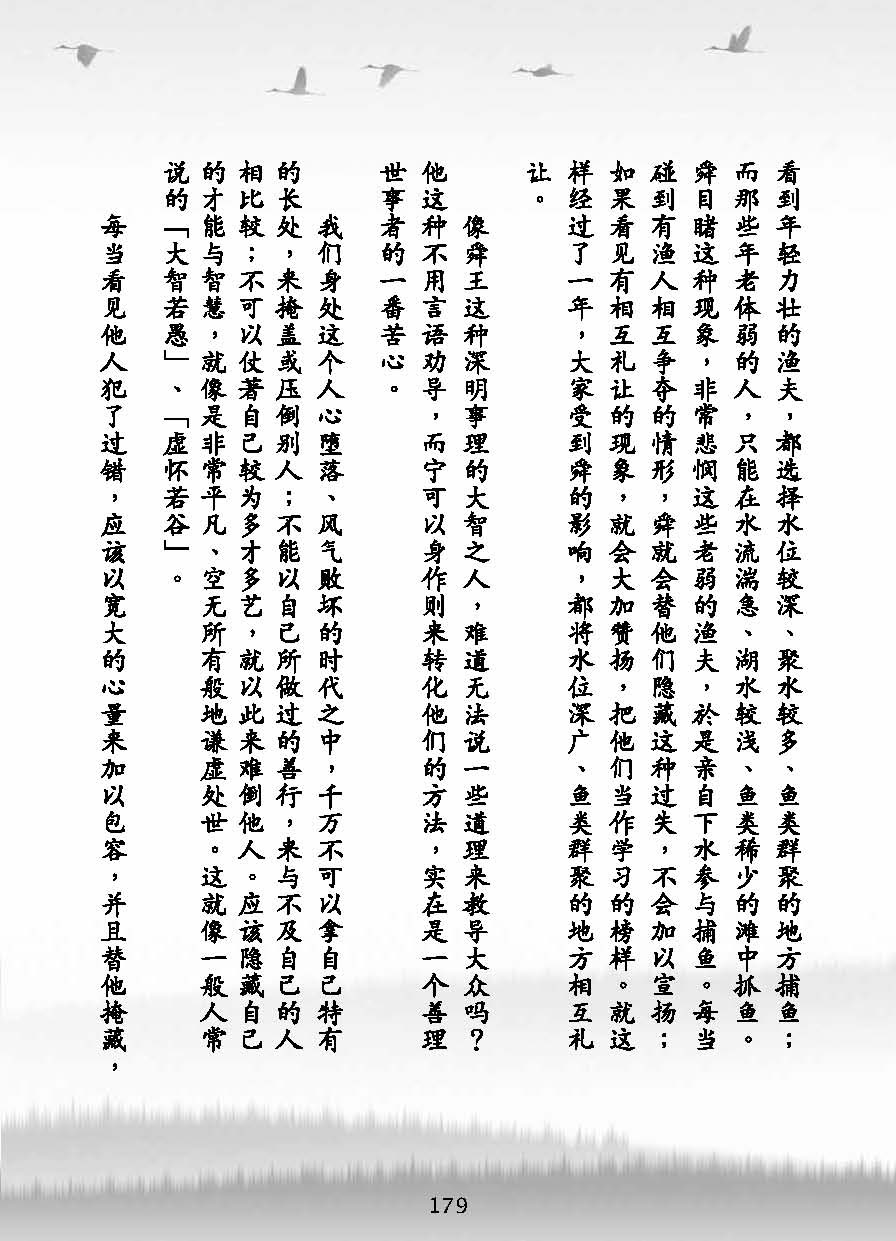 看到年轻力壮的渔夫，都选择水位较深、聚水较多、鱼类群聚的地方捕鱼；
而那些年老体弱的人，只能在水流湍急、湖水较浅、鱼类稀少的滩中抓鱼。
舜目睹这种现象，非常悲悯这些老弱的渔夫，於是亲自下水参与捕鱼。每当
碰到有渔人相互争夺的情形，舜就会替他们隐藏这种过失，不会加以宣扬；
如果看见有相互礼让的现象，就会大加赞扬，把他们当作学习的榜样。就这
样经过了一年，大家受到舜的影响，都将水位深广、鱼类群聚的地方相互礼
让。
像舜王这种深明事理的大智之人，难道无法说一些道理来教导大众吗？
他这种不用言语劝导，而宁可以身作则来转化他们的方法，实在是一个善理
世事者的一番苦心。
我们身处这个人心堕落、风气败坏的时代之中，千万不可以拿自己特有
的长处，来掩盖或压倒别人；不能以自己所做过的善行，来与不及自己的人
相比较；不可以仗著自己较为多才多艺，就以此来难倒他人。应该隐藏自己
的才能与智慧，就像是非常平凡、空无所有般地谦虚处世。这就像一般人常
说的「大智若愚」、「虚怀若谷」。
每当看见他人犯了过错，应该以宽大的心量来加以包容，并且替他掩藏，
179